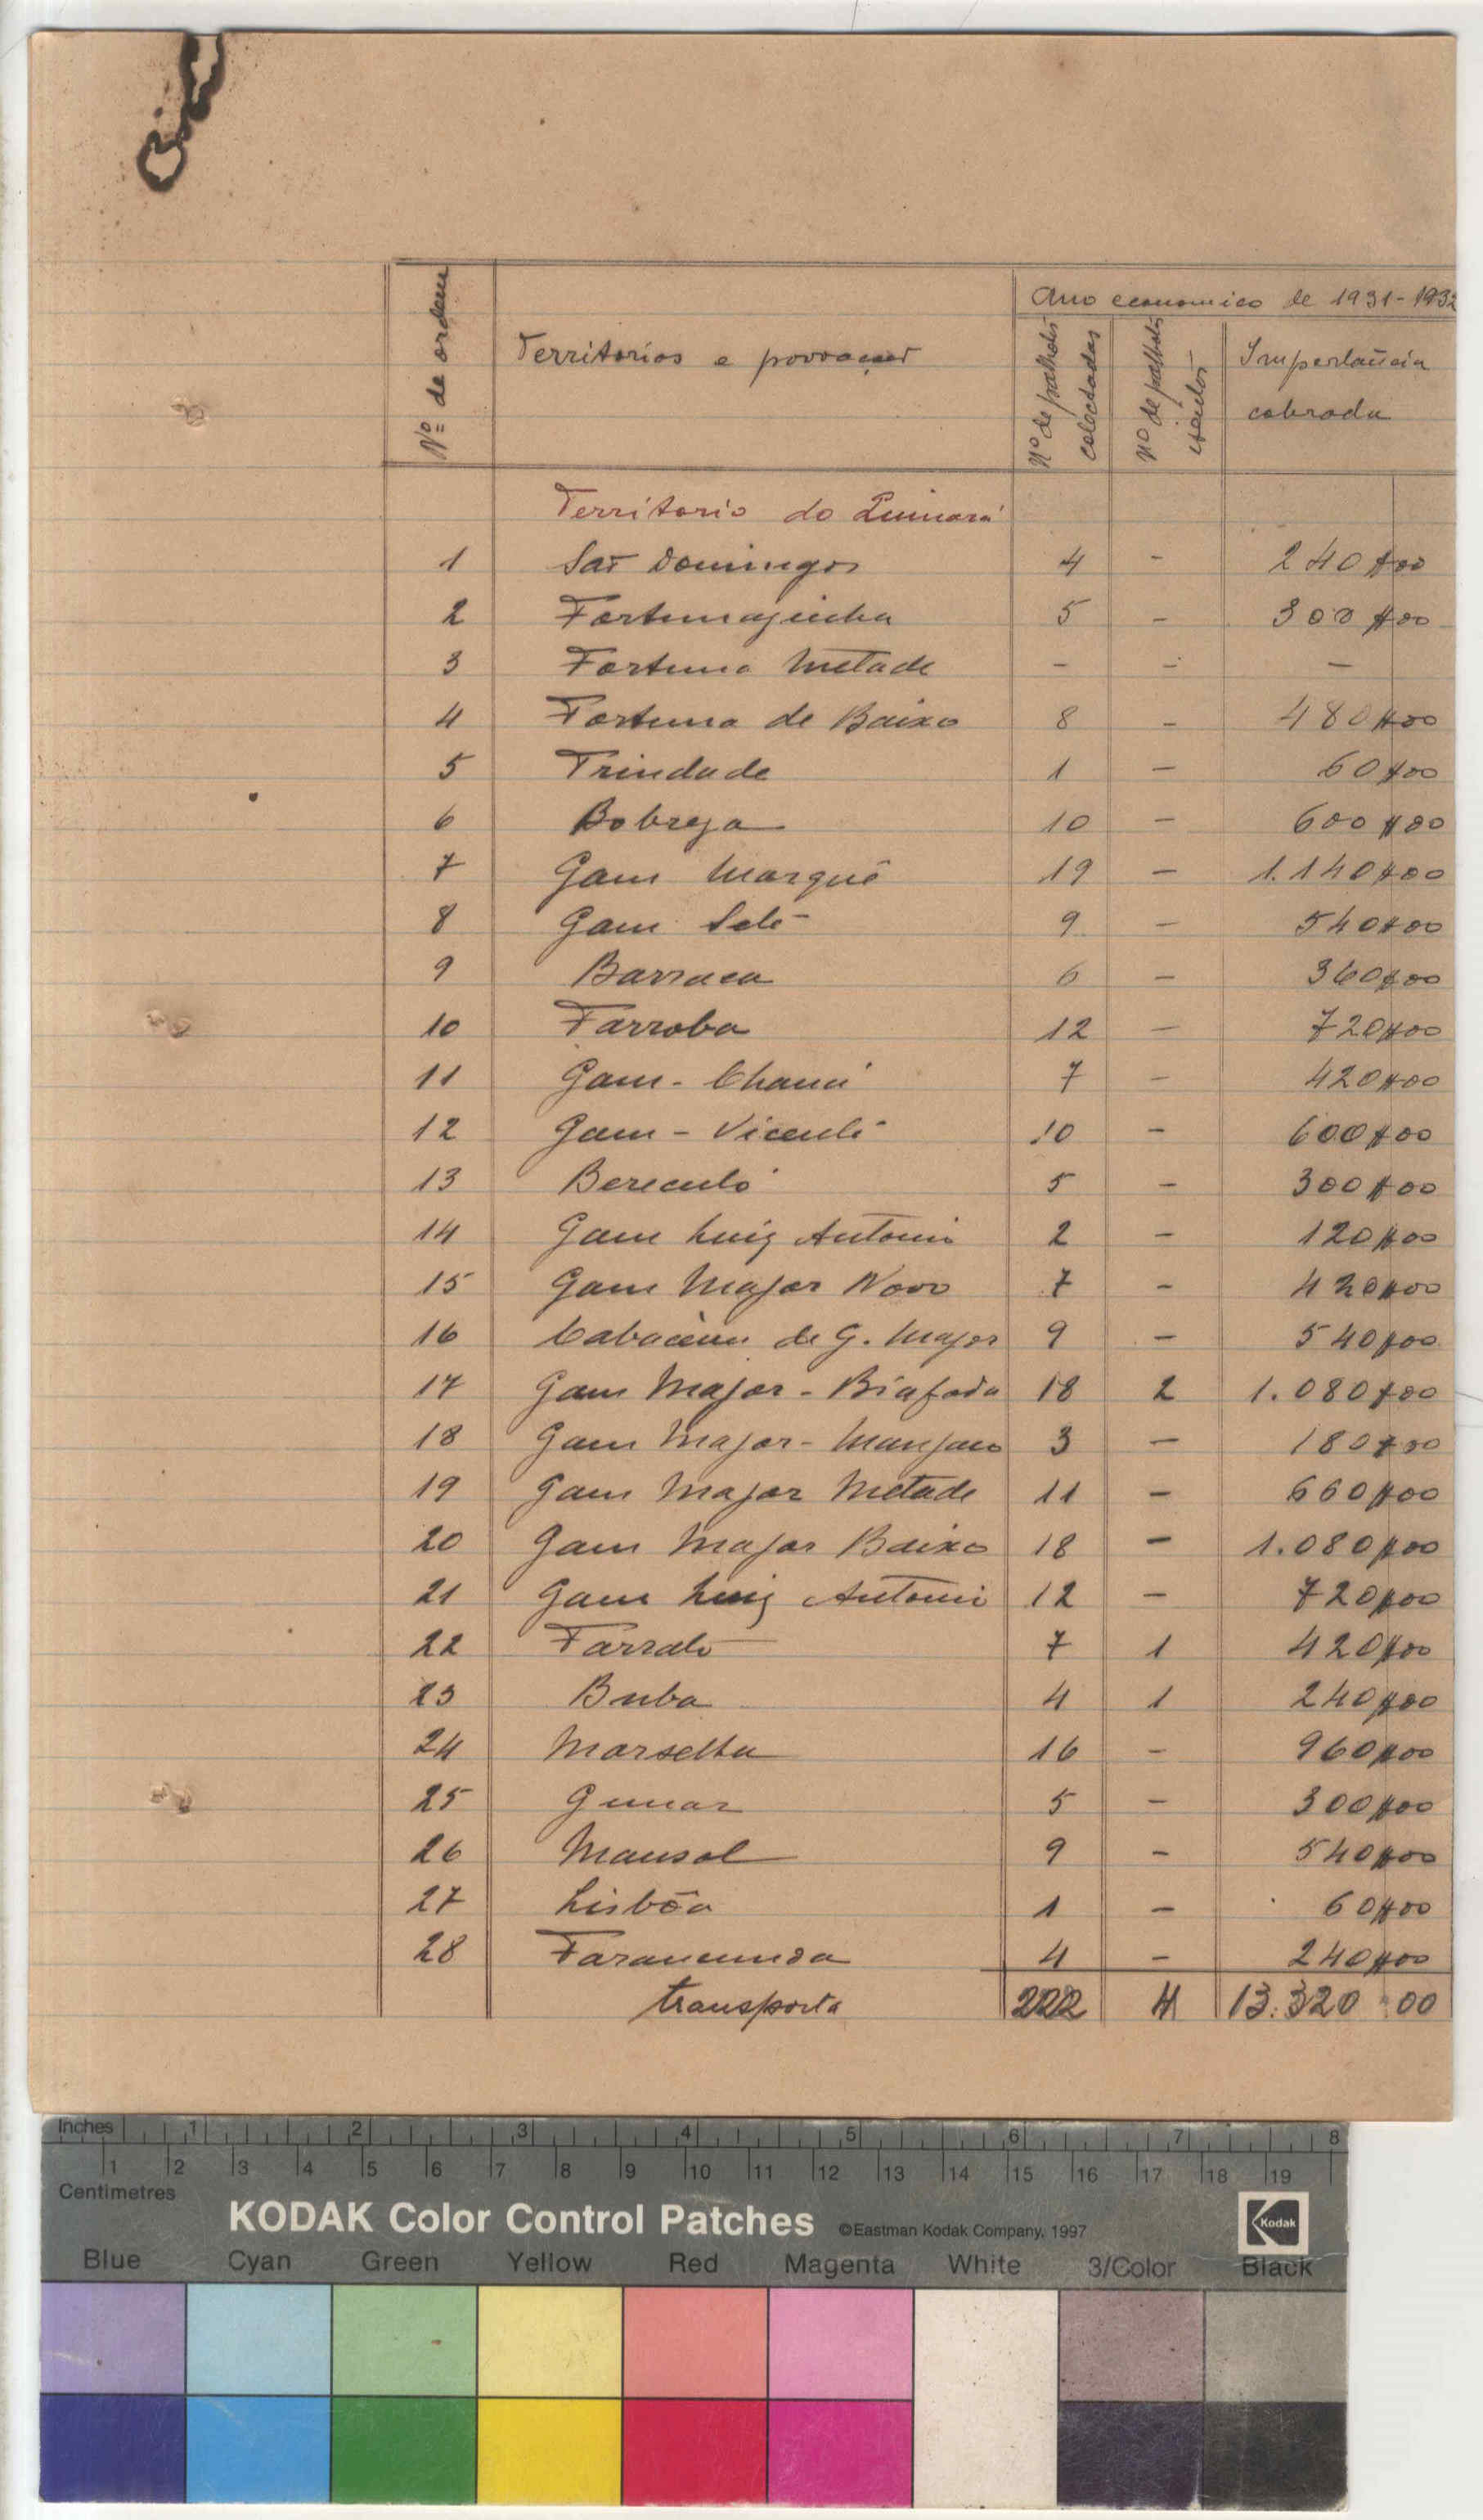 Nº de ordem
Territorios e povoações
Ano economico de 1931-1932
Nº de palhotas colectadas
Nº de palhotas
Importância cobrada
Territorio do
1 São Domingos 4 - 240$00
2 Fortunajinha 5 - 300$00
3 Fortuna Metade - - -
4 Fortuna de Baixo 8 - 480$00
5 Trindade 1 - 60$00
6 Bobreja 10 - 600$00
7 Gam Marquê 19 - 1.140$00
8 Gam 9 - 540$00
9 Barraca 6 - 360$00
10 Farroba 12 - 720$00
11 Gam - 7 - 420$00
12 Gam - Vicente 10 - 600$00
13 5 - 300$00
14 Gam Luiz Antonio 2 - 120$00
15 Gam Major Novo 7 - 420$00
16 de G. Major 9 - 540$00
17 Gam Major - Biafada 18 2 1.080$00
18 Gam Major - Manjaco 3 - 180$00
19 Gam Major Metade 11 - 660$00
20 Gam Major Baixo 18 - 1.080$00
21 Gam Luiz Antoni 12 - 720$00
22 7 1 420$00
23 Buba 4 1 240$00
24 16 - 960$00
25 5 - 300$00
26 Mansol 9 - 540$00
27 Lisbôa 1 - 60$00
28 4 - 240$00
transporta 222 4 13.320 00
Inches 1 2 3 4 5 6 7 8
1 2 3 4 5 6 7 8 9 10 11 12 13 14 15 16 17 18 19
Centimetres
KODAK Color Control Patches ©Eastman Kodak Company, 1997 Kodak
Blue Cyan Green Yellow Red Magenta White 3/Color Black